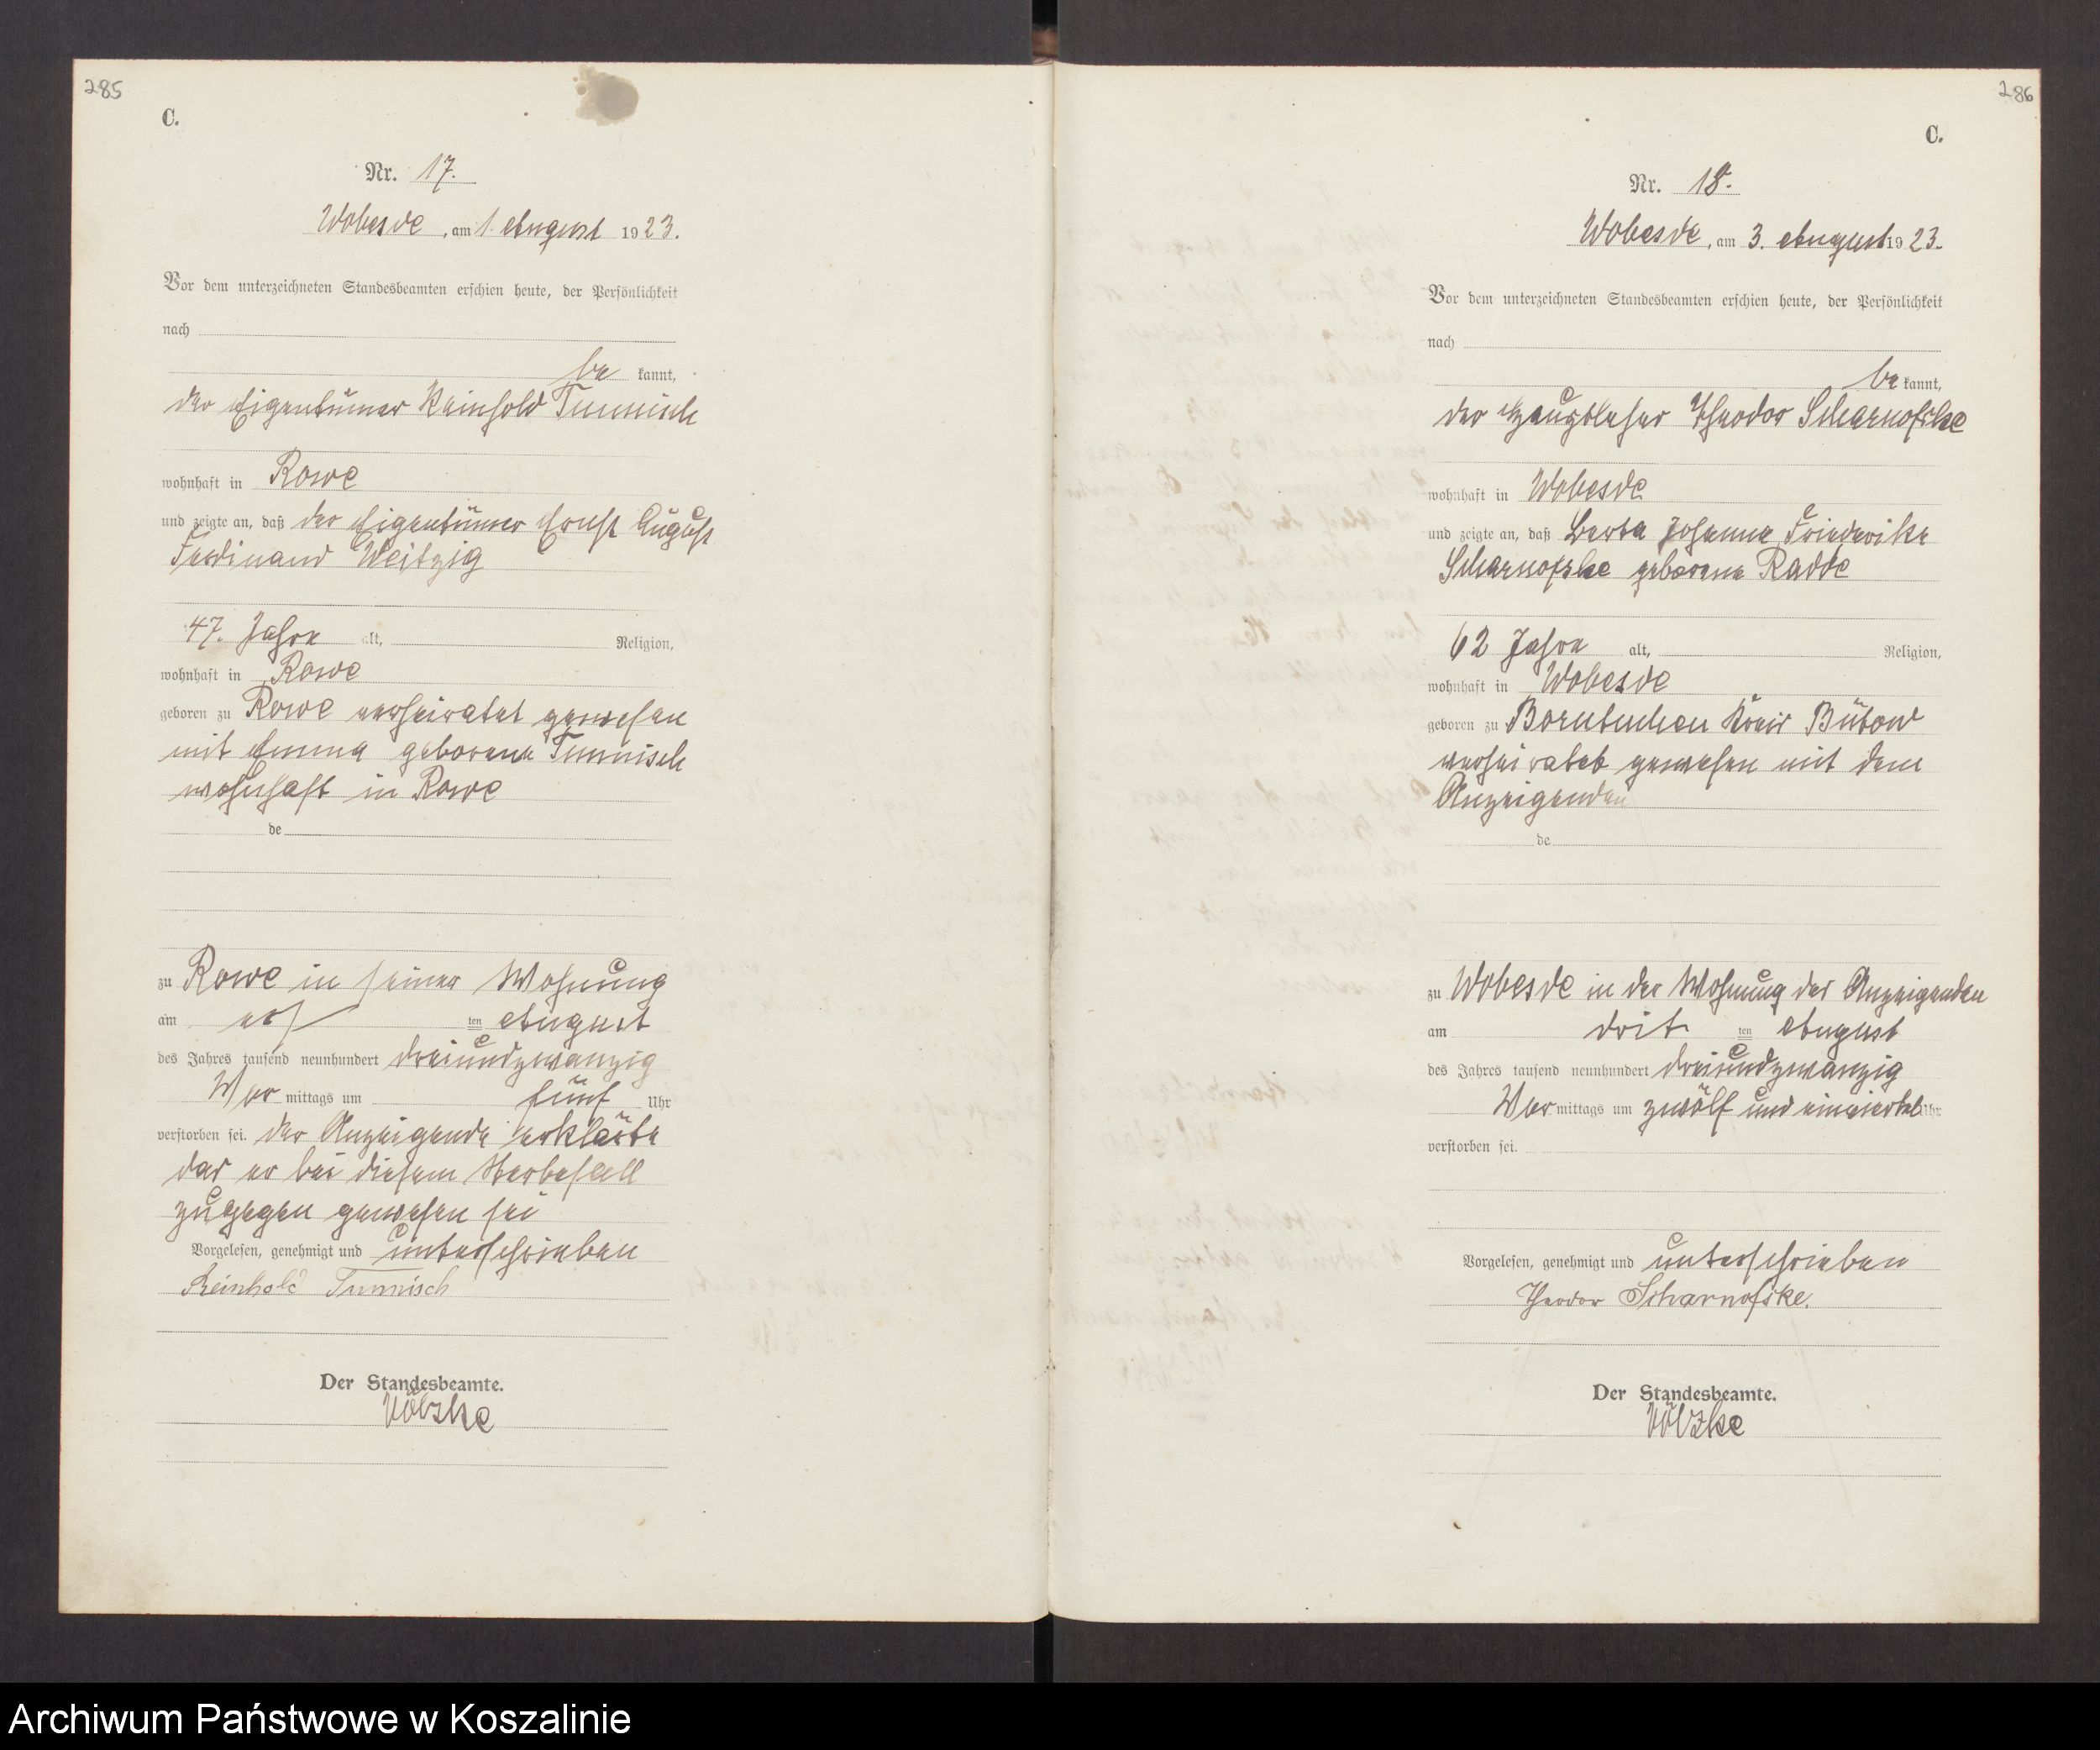 285
C.
Nr. 17.
Wobesde, am 1. August 1923.
Vor dem unterzeichneten Standesbeamten erschien heute, der Persönlichkeit
nach
be kannt,
der Eigentümer Reinhold Tummisch
wohnhaft in Rowe
und zeigte an, daß der Eigentümer Ernst August
Ferdinand Weitzig
47. Jahre alt, Religion,
wohnhaft in Rowe
geboren zu Rowe verheiratet gewesen
mit Emma geborene Tummisch
wohnhaft in Rowe
de
zu Rowe in seiner Wohnung
am ers ten August
des Jahres tausend neunhundert dreiundzwanzig
Vor mittags um fünf Uhr
verstorben sei. der Anzeigende erklärte
das er bei diesem Sterbefall
zugegen gewesen sei
Vorgelesen, genehmigt und unterschrieben
Reinhold Tummisch
Der Standesbeamte.
Völzke
286
C.
Nr. 18.
Wobesde, am 3. August 1923.
Vor dem unterzeichneten Standesbeamten erschien heute, der Persönlichkeit
nach
be kannt,
der Hauptlehrer Theodor Scharnofske
wohnhaft in Wobesde
und zeigte an, daß Berta Johanna Friederike
Scharnofske geborene Radde
62 Jahre alt, Religion,
wohnhaft in Wobesde
geboren zu Borntuchen Kreis Bütow
verheiratet gewesen mit dem
Anzeigenden
de
zu Wobesde in der Wohnung des Anzeigenden
am drit ten August
des Jahres tausend neunhundert dreiundzwanzig
Vor mittags um zwölf und einviertel Uhr
verstorben sei.
Vorgelesen, genehmigt und unterschrieben
Theodor Scharnofske.
Der Standesbeamte.
Völzke
Archiwum Państwowe w Koszalinie